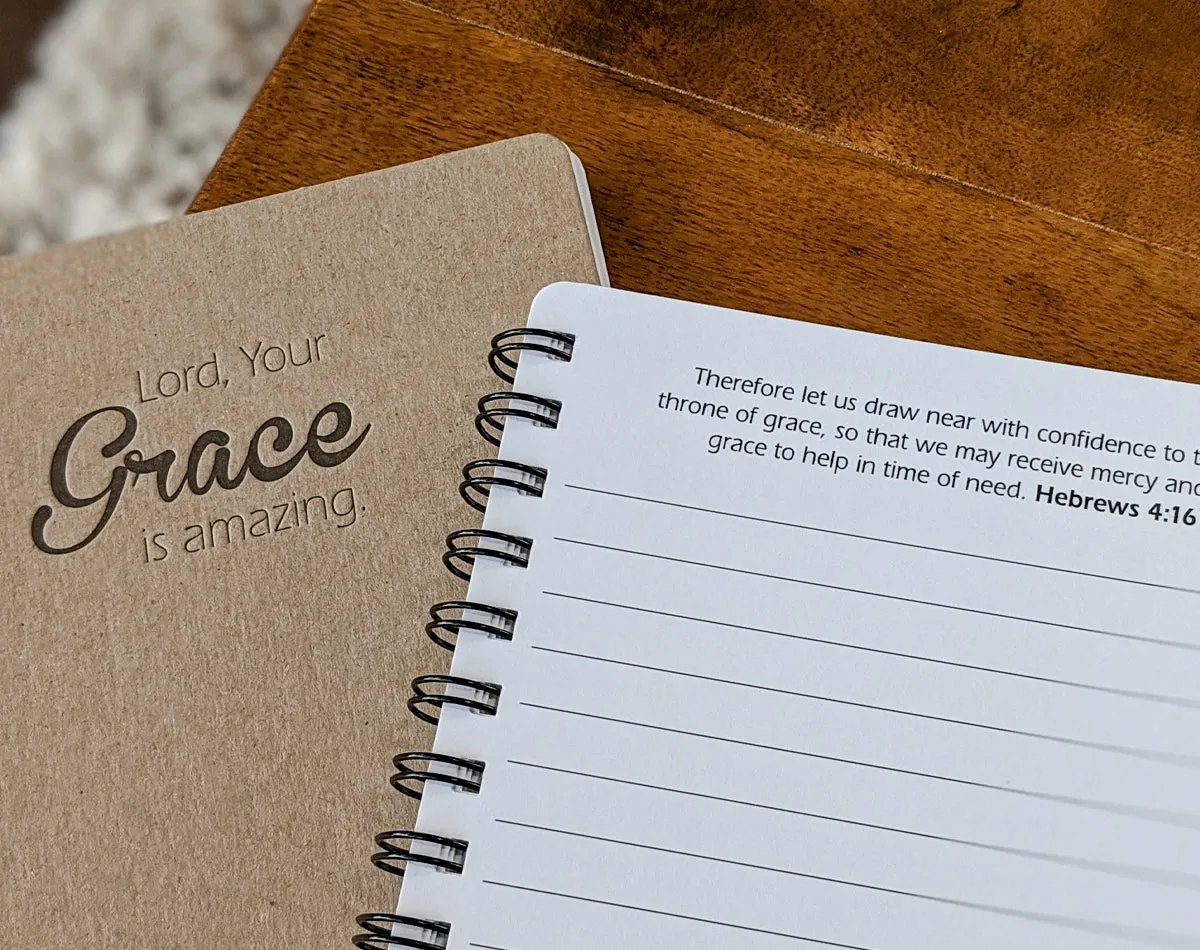 Lord, Your
Grace
is amazing.
Therefore let us draw near with confidence to
throne of grace, so that we may receive mercy
grace to help in time of need. Hebrews 4:16